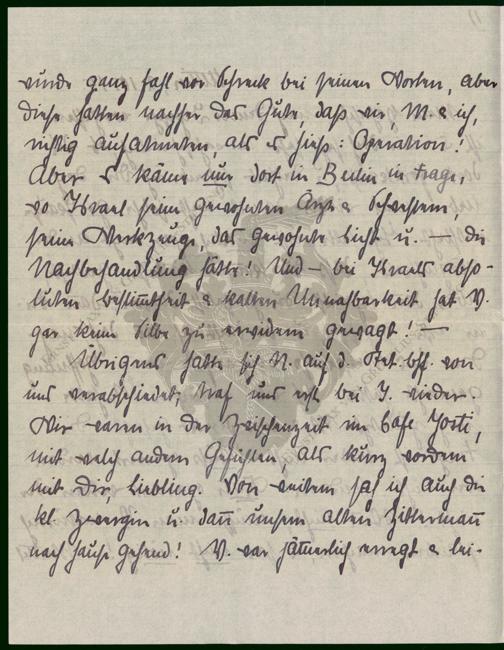 wurde ganz fahl vor Schreck bei seinen Worten, aber
diese hatten nachher das Gute, daß wir, M. & ich,
richtig aufatmeten, als es hieß: Operation!
Aber es käme nur dort in Berlin in Frage,
wo Israel seine gewohnten Ärzte & Schwestern,
seine Werkzeuge, das gewohnte Licht u. — die
Nachbehandlung hätte! Und – bei Israels abso-
luten Bestimmtheit & kalten Unnahbarkeit hat V.
gar keine Silbe zu erwidern gewagt! —
Übrigens hatte sich V. auf d. Port. hff. von
uns verabschiedet, traf uns erst bei I. wieder.
Wir waren in der Zwischenzeit im Cafe Josti,
mit welch andern Gesichten, als kurz vordem
mit Dir, Liebling. Von weitem sah ich auch die
kl. Zwergin u. dann unsern alten Zittermann
nach Hause gehend! V. war jämmerlich erregt & lei-